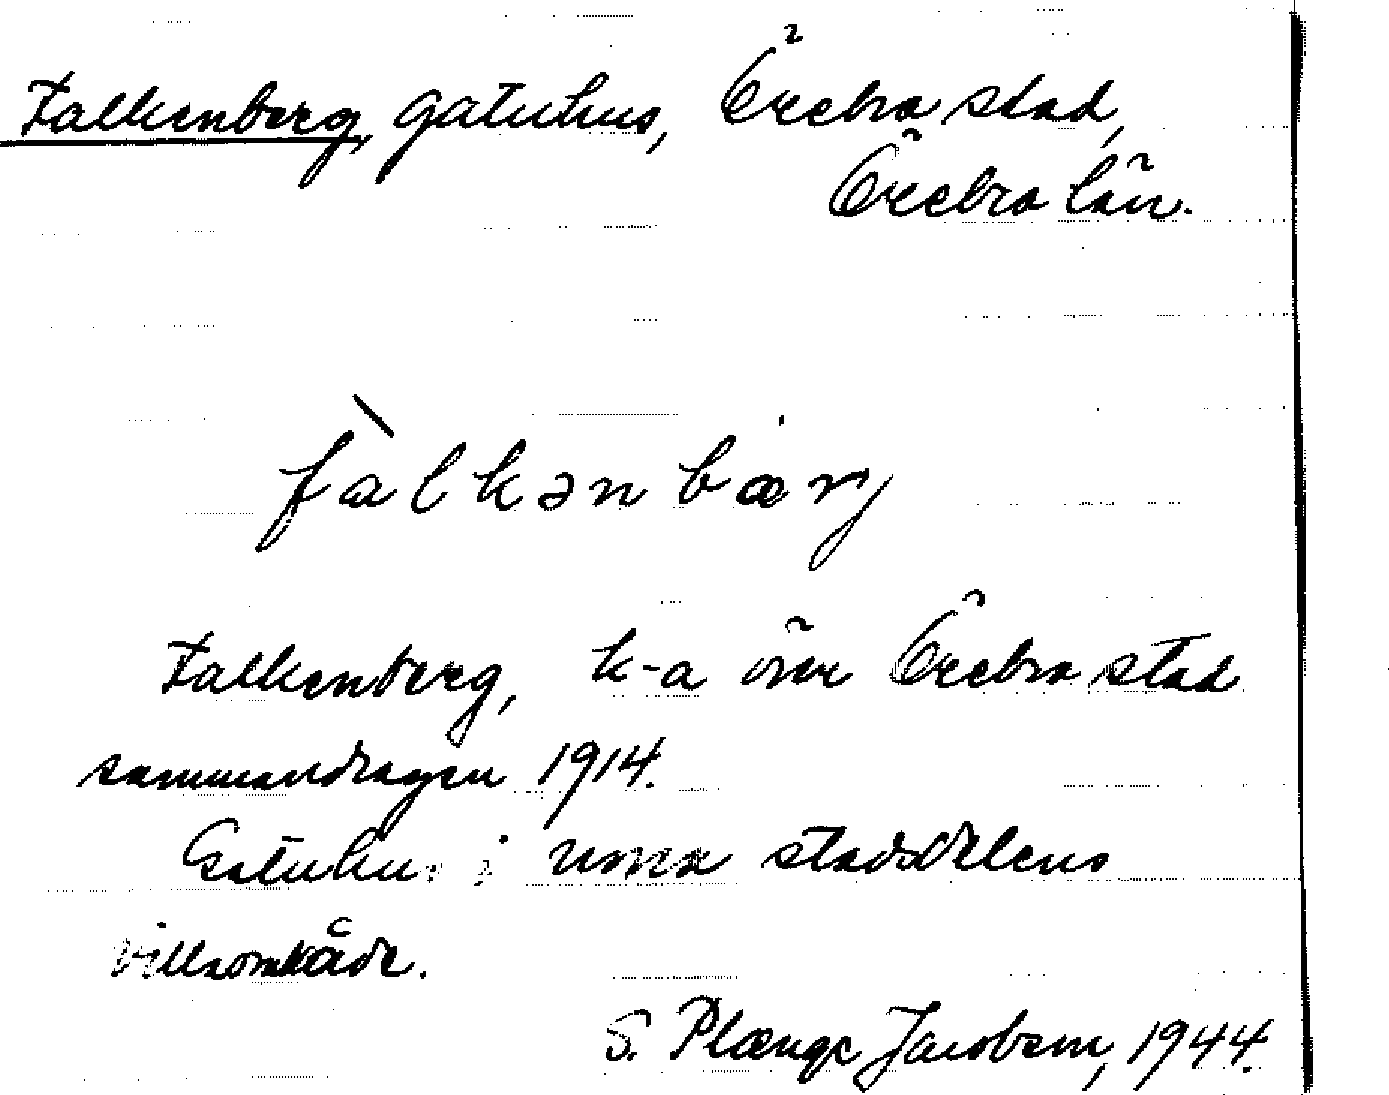 Falkenberg, gatuhus, Örebro stad,
Örebro län.
fàlkənbærj
Falkenberg, k-a över Örebro stad
sammandragen 1914.
Gatuhus i norra stadsdelens
villaområde.
S. Plænge Jacobsen, 1944.